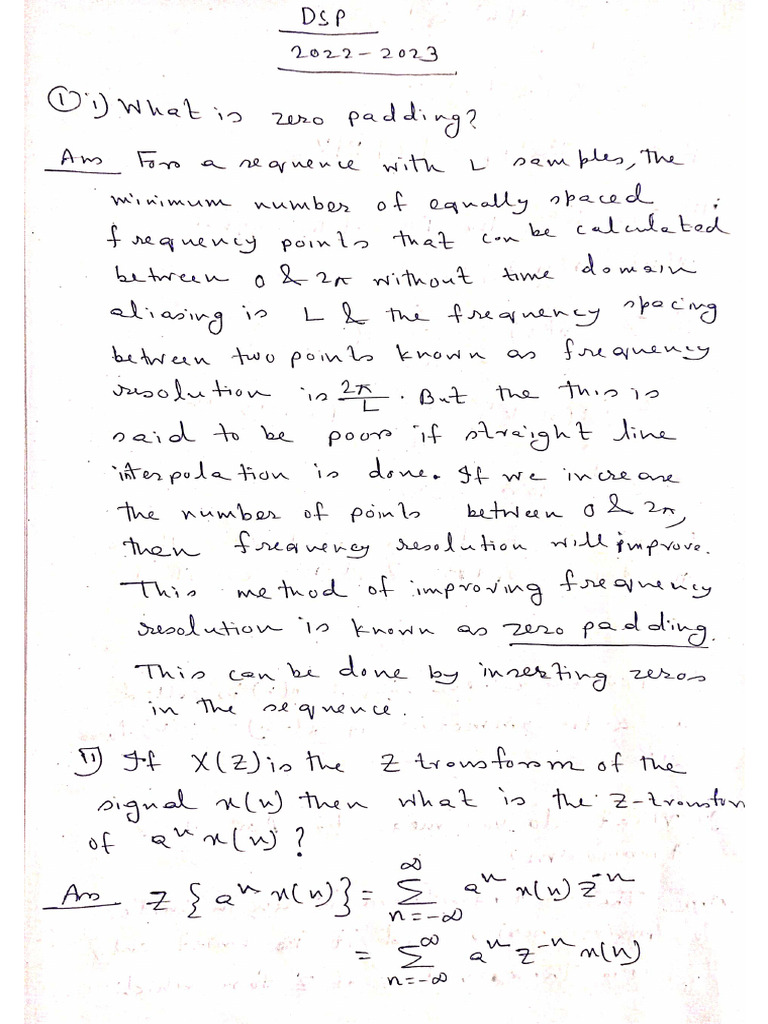 DSP
2022-2023
① i) What is zero padding?
Ans For a sequence with L samples, the
minimum number of equally spaced
frequency points that can be calculated
between 0 & 2π without time domain
aliasing is L & the frequency spacing
between two points known as frequency
resolution is 2π/L. But the this is
said to be poor if straight line
interpolation is done. If we increase
the number of points between 0 & 2π,
then frequency resolution will improve.
This method of improving frequency
resolution is known as zero padding.
This can be done by inserting zeros
in the sequence.
ii) If X(Z) is the Z transform of the
signal x(n) then what is the Z-transfor
of aⁿ x(n)?
Ans Z {aⁿ x(n)} = ∑_{n=-∞}^{∞} aⁿ x(n) z⁻ⁿ
= ∑_{n=-∞}^{-∞} aⁿ z⁻ⁿ x(n)